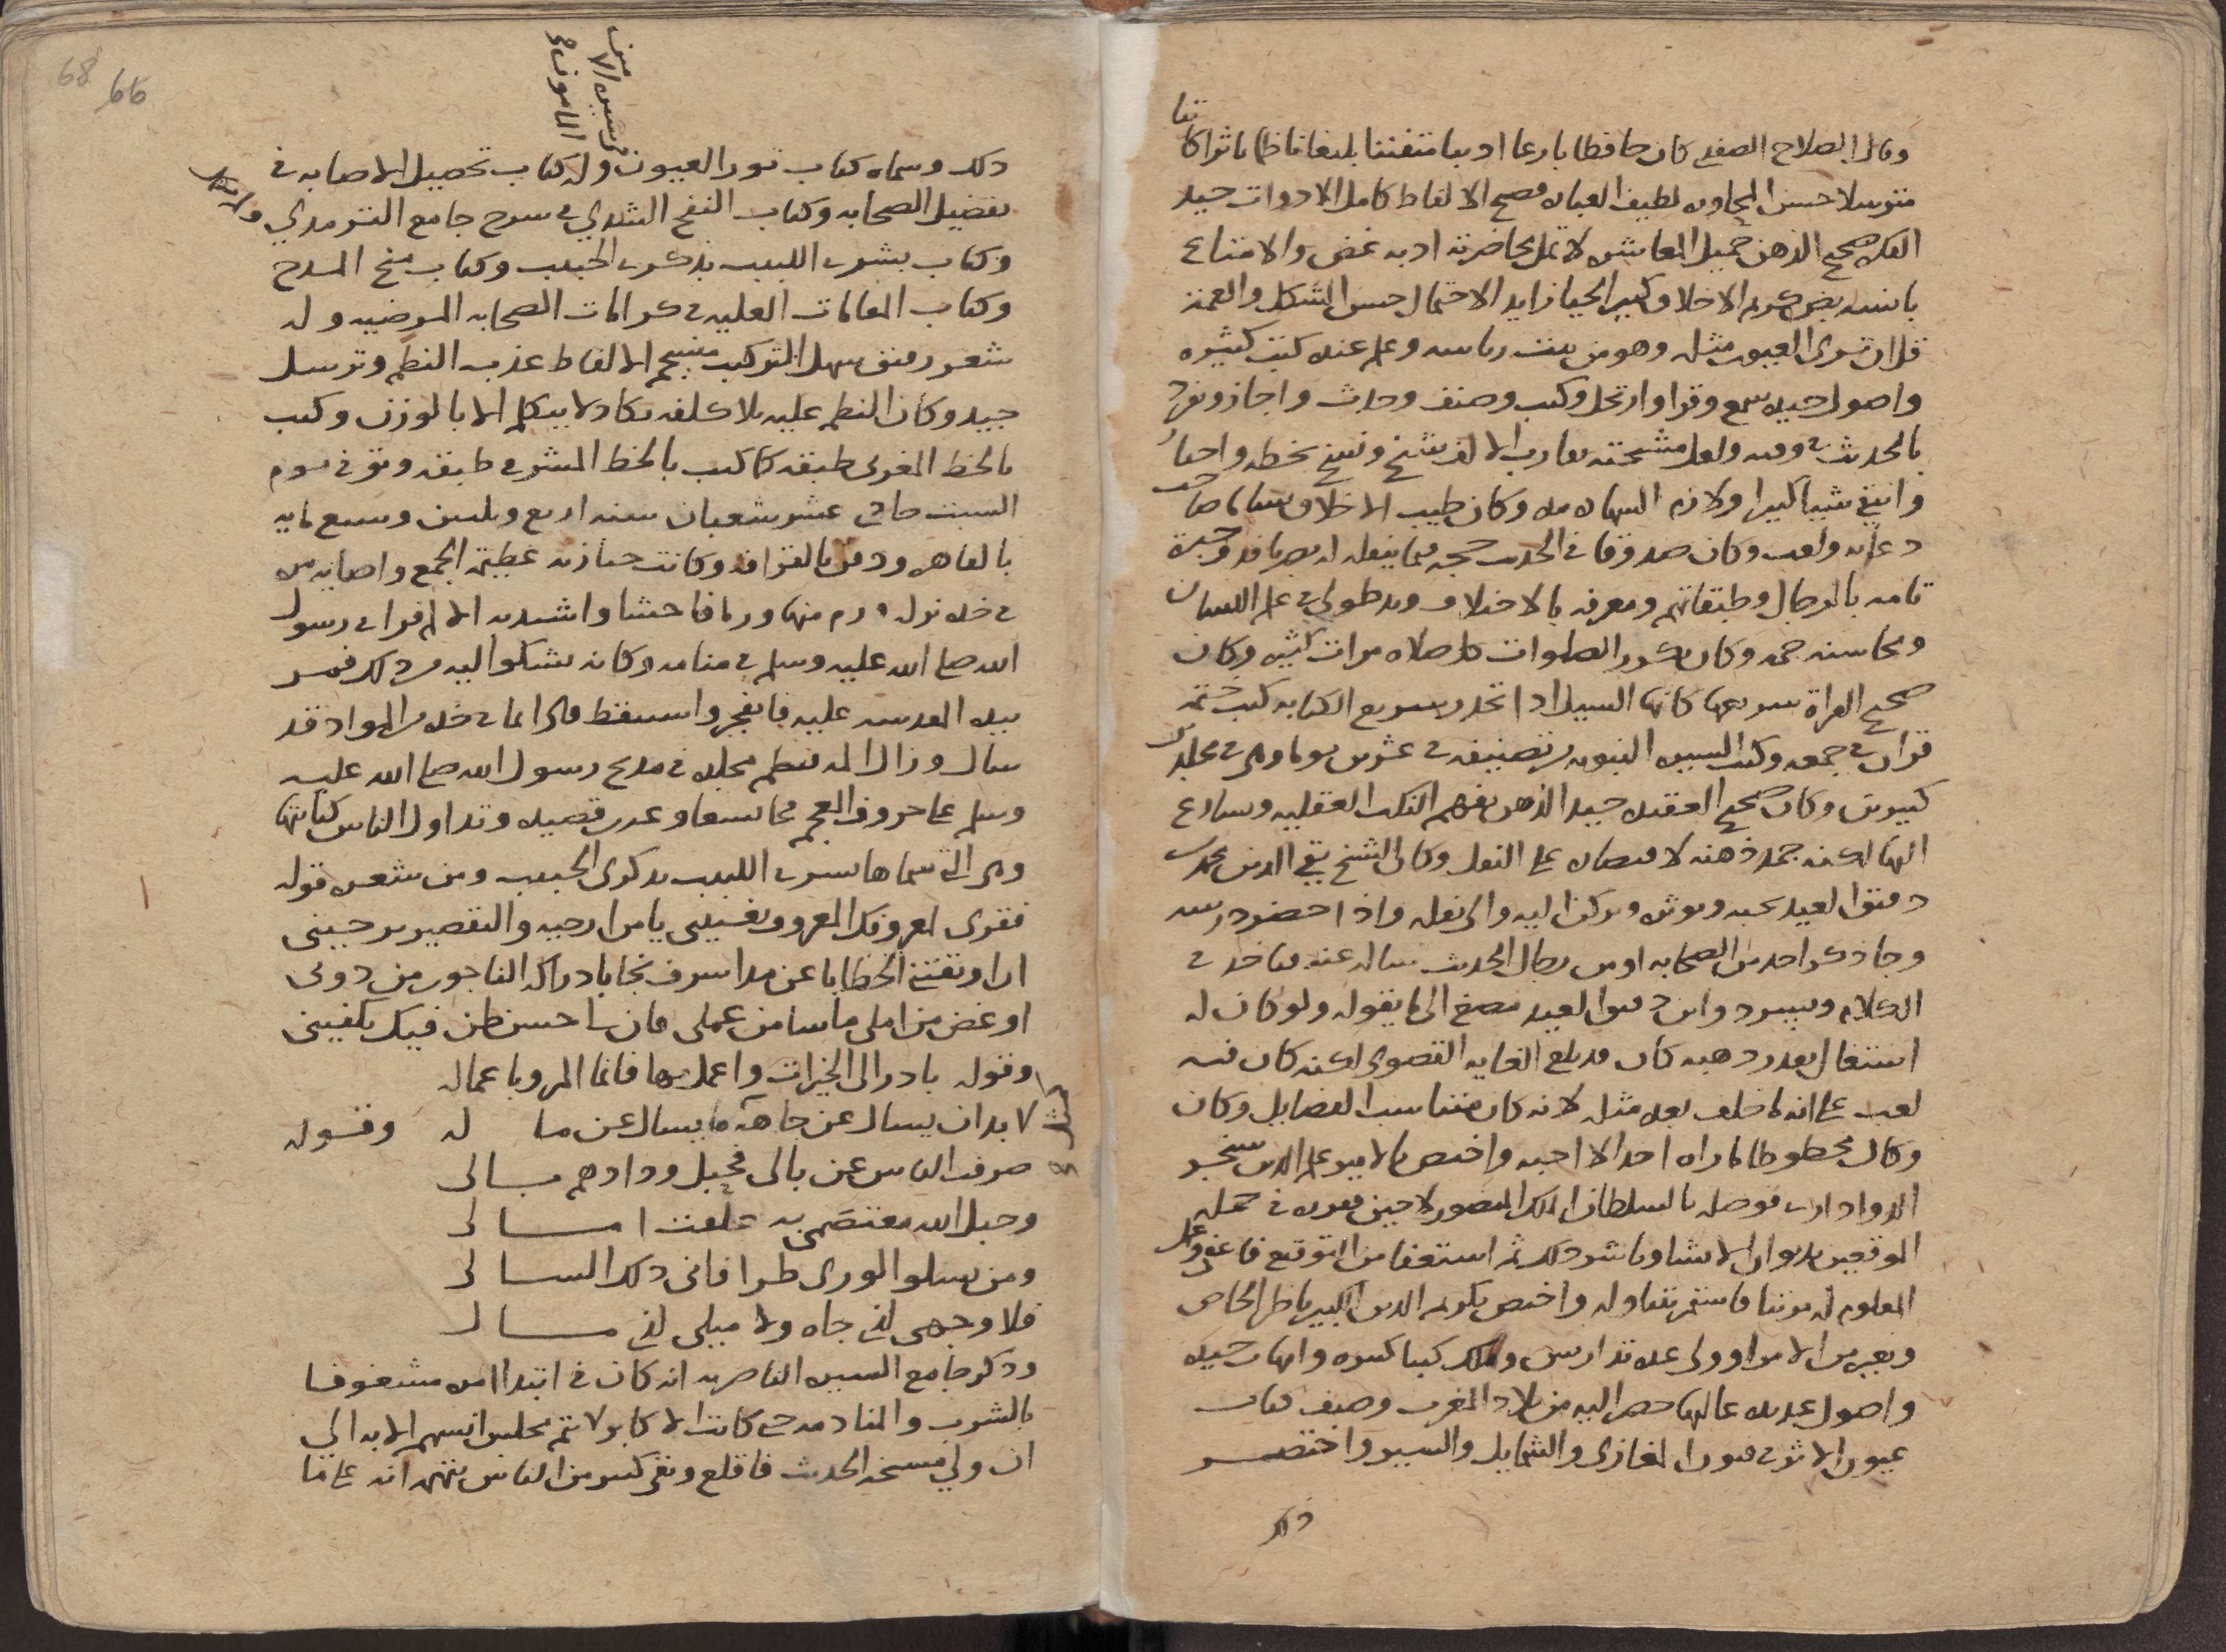 وقال الصلاح الصفدي كان حافظا بارعا اديبا متفننا بليغا ناظما ناثرا كاتبا
مترسلا حسن المحاوره لطيف العباره فصيح الالفاظ كامل الادوات جيد
الفكره صحيح الذهن جميل المعاشره لا تمل محاضرته ادبه غض والامتاع
بانسه نض كريم الاخلاق كبير الحيا زايد الاحتمال حسن الشكل والعمه
قل ان ترى العيون مثله وهو من بيت رياسه وعلم عنده كتب كثيره
واصول جيده سمع وقرا وارتحل وكتب وصنف وحدث واجاز وتفرد
بالحديث في وقته ولعل مشيخته يقارب الالف شيخ ونسخ بخطه واختار
وانتقى شيا كثيرا ولازم الشهاده مده وكان طيب الاخلاق بساما صاحب
دعابه ولعب وكان صدوقا في الحديث حجه فيما ينقله له بصر نافذ وخبرة
تامه بالرجال وطبقاتهم ومعرفه بالاختلاف ويد طولى في علم اللسان
ومحاسنه جمه وكان يكرر الصلوات كل صلاه مرات كثيره وكان
صحيح القراة سريعها كانها السيل اذا تحدر سريع الكتابه كتب ختمة
قران في جمعه وكتب السيره النبويه تصنيفه في عشرين يوما وهي في مجلدين
كبيرين وكان صحيح العقيده جيد الذهن يفهم النكت العقليه ويسارع
اليها لكنه جمد ذهنه لاقتصاره على النقل وكان الشيخ تقي الدين محمد بن
دقيق العيد يحبه ويوثره ويركن اليه والى نقله واذا حضر درسه
وجا ذكر احد من الصحابه او من رجال الحديث ساله عنه فياخذ في
الكلام ويسرد وابن دقيق العيد مصغ الى ما يقوله ولو كان له
اشتغال بقدر ذهنه كان قد بلغ الغايه القصوى لكنه كان فيه
لعب على انه لم يخلف بعده مثله لانه كان متناسب الفضايل وكان
وكان محظوظا ما راه احد الا احبه واختص بالامير علم الدين سنجر
الدواداري فوصله بالسلطان الملك المنصور لاجين فقرره في جملة
الموقعين بديوان الانشا وباشر ذلك ثم استعفا من التوقيع فاعفي وجعل
المعلوم له مرتبا فاستمر يتناوله واختص بكريم الدين الكبير ناظر الخاص
وبغيره من الامرا وولي عدة تداريس وملك كتبا كثيره وامهات جيده
واصول عديده غالبها حضر اليه من بلاد المغرب وصنف كتاب
عيون الاثر في فنون المغازي والشمايل والسير واختصر
ذلك
68 66
من
سيره الا
المامون
ذلك وسماه كتاب نور العيون وله كتاب تحصيل الاصابه في
تفضيل الصحابه وكتاب النفح الشذي في شرح جامع الترمذي
وكتاب بشرى اللبيب بذكرى الحبيب وكتاب منح المدح
وكتاب المقامات العليه في كرامات الصحابه المرضيه وله
شعر رقيق سهل التركيب منسجم الالفاظ عذب النظم وترسل
جيد وكان النظم عليه بلا كلفه يكاد لا يتكلم الا بالوزن وكتب
بالخط المغربي طبقه كما كتب بالخط المشرقي طبقه وتوفي يوم
السبت حادي عشر شعبان سنه اربع وثلثين وسبعمايه
بالقاهره ودفن بالقرافه وكانت جنازته عظيمة الجمع واصابه مره
في خده نزله ورم منها ورما فاحشا واشتد به الالم فراى رسول
الله صلى الله عليه وسلم في منامه وكانه يشكوا اليه من ذلك فمر
بيده المقدسه عليه فانفجر واستيقظ فراى ما في خده من المواد قد
سال وزال المه فنظم مجلده في مدح رسول الله صلى الله عليه
وسلم على حروف المعجم تسعا وعشرين قصيده وتداول الناس كتابتها
وهي التي سماها بشرى اللبيب بذكرى الحبيب ومن شعره قوله
فقري لمعروفك المعروف يغنيني يا من ارجيه والتقصير يرجيني
ان اوبقتني الخطايا عن مدا شرف نجا بادراكه الناجون من دوني
او غض من املي ما سا من عملي فان لي حسن ظن فيك يكفيني
وقوله بادر الى الخيرات واعمل بها فانما المرو باعماله
لا بد ان يسال عن جاهه ما يسال عن ما له وقوله
صرفت الناس عن بالي فحبل ودادهم بالي
وحبل الله معتصمي به علقت امالي
ومن يسلو الورى طرا فاني ذلك السالي
فلا وجهي لذي جاه ولا ميلي لذي مال
وذكر جامع السيره الناصريه انه كان في ابتدا امره مشغوفا
بالشرب والمنادمه حتى كانت الاكابر لا يتم مجلس انسهم الا به الى
ان ولي مشيخه الحديث فاقلع وبقي كثير من الناس يتهم انه على ما